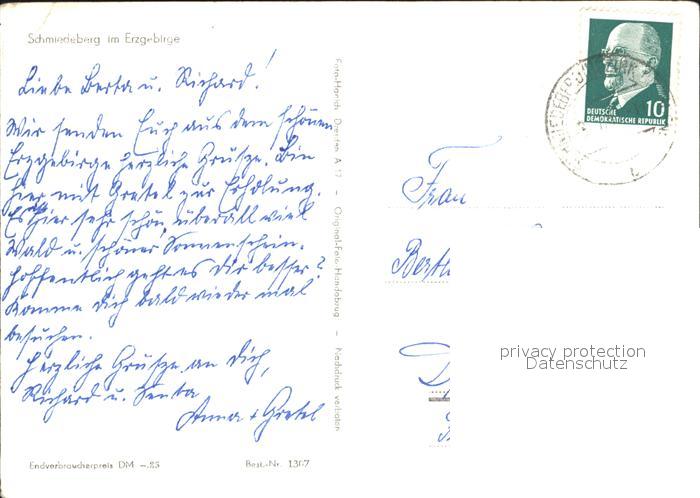 Schmiedeberg im Erzgebirge
Liebe Berta u. Richard!
Wir senden Euch aus dem schönen
Erzgebirge herzliche Grüsze. Bin
hier mit Gretel zur Erholung.
Es ist hier sehr schön, überall viel
Wald u. schöner Sonnenschein.
Hoffentlich geht es Dir besser?
Komme Dich bald wieder mal
besuchen.
Herzliche Grüsze an Dich,
Richard u. Senta
Anna + Gretel
Endverbraucherpreis DM -.25
Best.-Nr. 1367
Dresden A 17 - Original-Foto-Handabzug - Nachdruck verboten
DEUTSCHE
DEMOKRATISCHE REPUBLIK
10
Frau
Berth
privacy protection
Datenschutz